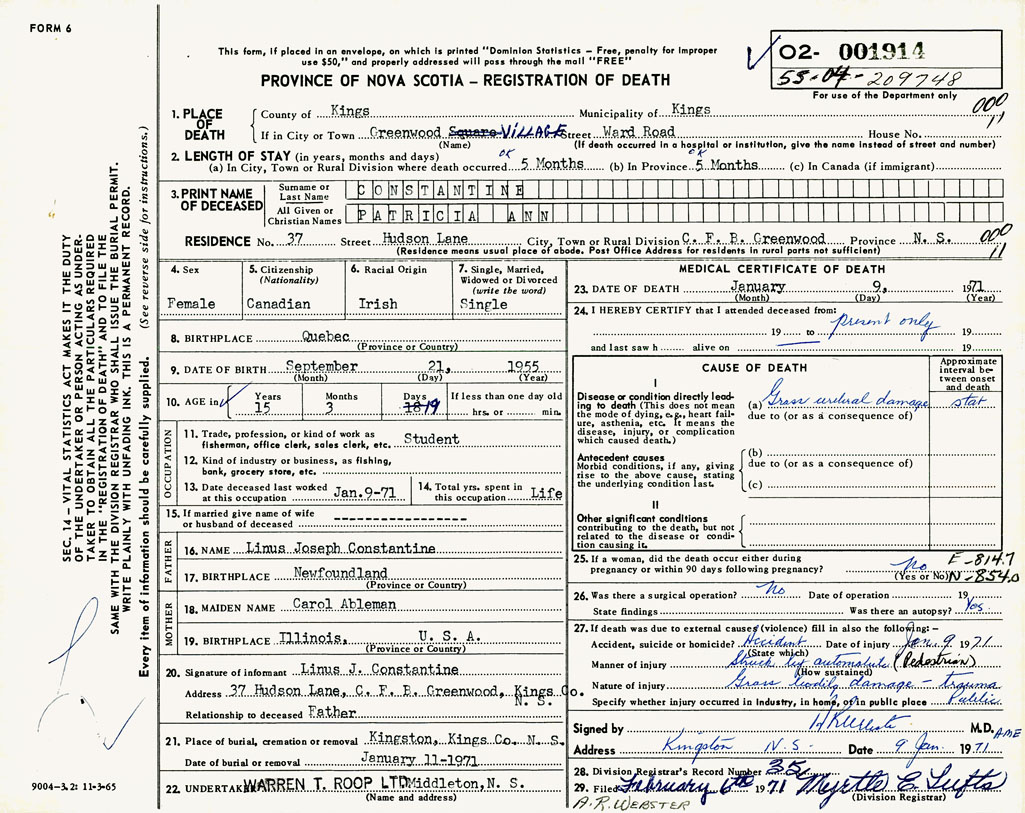 FORM 6
This form, if placed in an envelope, on which is printed "Dominion Statistics – Free, penalty for improper
use $50," and properly addressed will pass through the mail "FREE"
PROVINCE OF NOVA SCOTIA – REGISTRATION OF DEATH
O2- 001914
55-04-209748
For use of the Department only
000
11
1. PLACE OF DEATH
County of Kings Municipality of Kings
If in City or Town Greenwood Square VILLAGE Street Ward Road House No.
(Name) (If death occurred in a hospital or institution, give the name instead of street and number)
2. LENGTH OF STAY (in years, months and days) OK OK
(a) In City, Town or Rural Division where death occurred 5 Months (b) In Province 5 Months (c) In Canada (if immigrant)
3. PRINT NAME OF DECEASED
Surname or Last Name CONSTANTINE
All Given or Christian Names PATRICIA ANN
RESIDENCE No. 37 Street Hudson Lane City, Town or Rural Division C. F. B. Greenwood Province N. S. 000
(Residence means usual place of abode. Post Office Address for residents in rural parts not sufficient) 11
4. Sex
Female
5. Citizenship
(Nationality)
Canadian
6. Racial Origin
Irish
7. Single, Married,
Widowed or Divorced
(write the word)
Single
8. BIRTHPLACE Quebec
(Province or Country)
9. DATE OF BIRTH September 21, 1955
(Month) (Day) (Year)
10. AGE in Years Months Days If less than one day old
15 3 18 19 hrs. or min.
OCCUPATION
11. Trade, profession, or kind of work as
fisherman, office clerk, sales clerk, etc. Student
12. Kind of industry or business, as fishing,
bank, grocery store, etc.
13. Date deceased last worked
at this occupation Jan.9-71
14. Total yrs. spent in
this occupation Life
15. If married give name of wife
or husband of deceased ------------------
FATHER
16. NAME Linus Joseph Constantine
17. BIRTHPLACE Newfoundland
(Province or Country)
MOTHER
18. MAIDEN NAME Carol Ableman
19. BIRTHPLACE Illinois, U. S. A.
(Province or Country)
20. Signature of informant Linus J. Constantine
Address 37 Hudson Lane, C. F. B. Greenwood, Kings Co.
N. S.
Relationship to deceased Father
21. Place of burial, cremation or removal Kingston, Kings Co. N. S.
Date of burial or removal January 11-1971
22. UNDERTAK WARREN T. ROOP LTD Middleton, N. S.
(Name and address)
MEDICAL CERTIFICATE OF DEATH
23. DATE OF DEATH January 9, 1971
(Month) (Day) (Year)
24. I HEREBY CERTIFY that I attended deceased from:
19 to present only 19
and last saw h alive on 19
CAUSE OF DEATH
Approximate
interval be-
tween onset
and death
I
Disease or condition directly lead-
ing to death (This does not mean
the mode of dying, e.g., heart fail-
ure, asthenia, etc. It means the
disease, injury, or complication
which caused death.)
(a) Gross cerebral damage stat
due to (or as a consequence of)
Antecedent causes
Morbid conditions, if any, giving
rise to the above cause, stating
the underlying condition last.
(b)
due to (or as a consequence of)
(c)
II
Other significant conditions
contributing to the death, but not
related to the disease or condi-
tion causing it.
25. If a woman, did the death occur either during
pregnancy or within 90 days following pregnancy? No
(Yes or No)
E-814.7
N-854.0
26. Was there a surgical operation? No Date of operation 19
State findings Was there an autopsy? Yes
27. If death was due to external causes (violence) fill in also the following: –
Accident, suicide or homicide? Accident Date of injury Jan. 9 1971
(State which)
Manner of injury Struck by automobile (Pedestrian)
(How sustained)
Nature of injury Gross bodily damage – trauma
Specify whether injury occurred in industry, in home, or in public place Public
Signed by M.D. AME
Address Kingston N.S. Date 9 Jan. 1971
28. Division Registrar's Record Number 35
29. Filed February 6th 1971 Myrtle E. Tufts
(Division Registrar)
A.R. WEBSTER
SEC. 14 – VITAL STATISTICS ACT MAKES IT THE DUTY
OF THE UNDERTAKER OR PERSON ACTING AS UNDER-
TAKER TO OBTAIN ALL THE PARTICULARS REQUIRED
IN THE "REGISTRATION OF DEATH" AND TO FILE THE
SAME WITH THE DIVISION REGISTRAR WHO SHALL ISSUE THE BURIAL PERMIT.
WRITE PLAINLY WITH UNFADING INK. THIS IS A PERMANENT RECORD.
Every item of information should be carefully supplied. (See reverse side for instructions.)
9004-3.2: 11-3-65